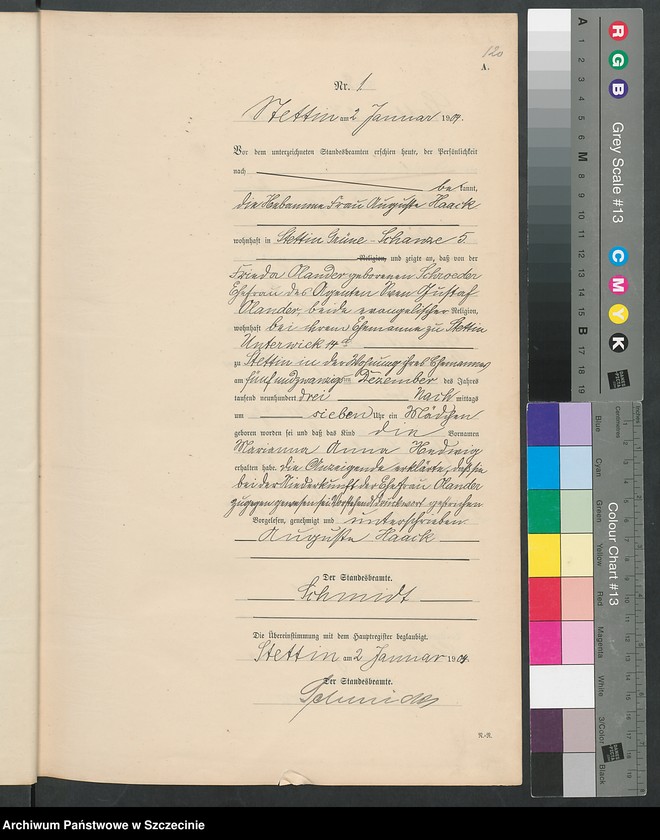 120
A.
Nr. 1
Stettin am 2 Januar 1904.
Vor dem unterzeichneten Standesbeamten erschien heute, der Persönlichkeit
nach
bekannt,
die Hebamme Frau Auguste Haack
wohnhaft in Stettin Grüne-Schanze 5
Religion, und zeigte an, daß von der
Frieda Olander geborenen Schroeder
Ehefrau des Agenten Sven Gustaf
Olander, beide evangelischer Religion,
wohnhaft bei ihrem Ehemanne zu Stettin
Unterwick 14
zu Stettin in der Wohnung ihres Ehemannes
am fünfundzwanzigsten Dezember des Jahres
tausend neunhundert drei Nachmittags
um sieben Uhr ein Mädchen
geboren worden sei und daß das Kind die Vornamen
Marianna Anna Hedwig
erhalten habe. die Anzeigende erklärte, daß sie
bei der Niederkunft der Ehefrau Olander
zugegen gewesen sei. Vorstehend Druckwort gestrichen
Vorgelesen, genehmigt und unterschrieben
Auguste Haack
Der Standesbeamte.
Schmidt
Die Übereinstimmung mit dem Hauptregister beglaubigt.
Stettin am 2 Januar 1904.
Der Standesbeamte.
Schmidt
R.-R.
R G B Grey Scale #13 C M Y K
A 1 2 3 4 5 6 M 8 9 10 11 12 13 14 15 B 17 18 19
Colour Chart #13
Blue
Cyan
Green
Yellow
Red
Magenta
White
3/Color
Black
Centimetres
Inches
Archiwum Państwowe w Szczecinie